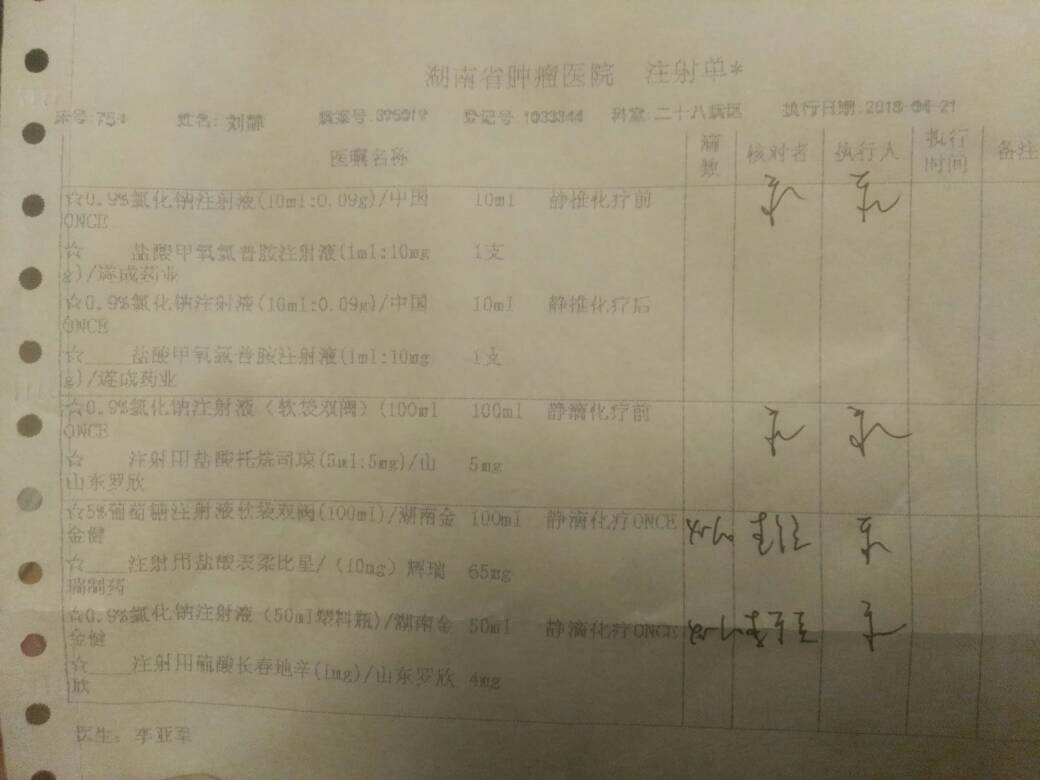 湖南省肿瘤医院 注射单*
床号:754 姓名: 刘静 病案号:395019 登记号:1033344 科室:二十八病区 执行日期:2018-04-21
医嘱名称 滴数 核对者 执行人 执行时间 备注
☆0.9%氯化钠注射液(10ml:0.09g)/中国 10ml 静推化疗前
ONCE
☆ 盐酸甲氧氯普胺注射液(1ml:10mg 1支
g)/遂成药业
☆0.9%氯化钠注射液(10ml:0.09g)/中国 10ml 静推化疗后
ONCE
☆____盐酸甲氧氯普胺注射液(1ml:10mg 1支
g)/遂成药业
☆0.9%氯化钠注射液(软袋双阀)(100ml 100ml 静滴化疗前
ONCE
☆ 注射用盐酸托烷司琼(5ml:5mg)/山 5mg
山东罗欣
☆5%葡萄糖注射液软袋双阀(100ml)/湖南金 100ml 静滴化疗ONCE
金健
☆____注射用盐酸表柔比星/(10mg)辉瑞 65mg
瑞制药
☆0.9%氯化钠注射液(50ml塑料瓶)/湖南金 50ml 静滴化疗ONCE
金健
☆____注射用硫酸长春地辛(1mg)/山东罗欣 4mg
欣
医生: 李亚军